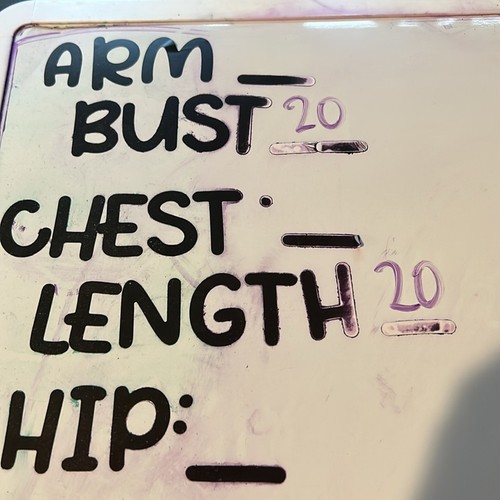 ARM __
BUST 20
CHEST: __
LENGTH 20
HIP: __